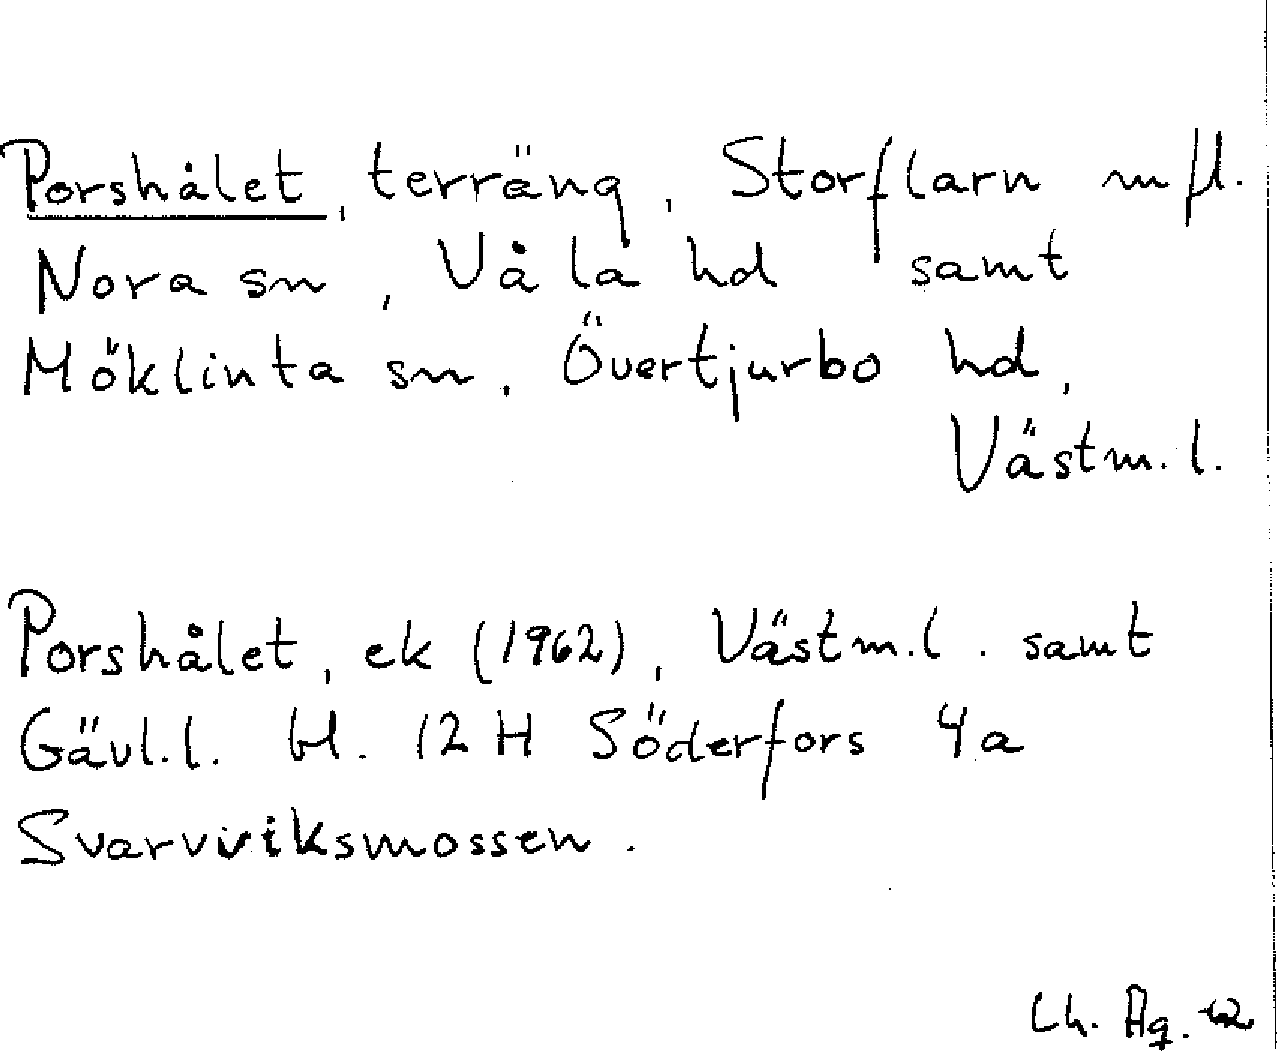 Porshålet, terräng, Storflarn m fl.
Nora sn, Våla hd samt
Möklinta sn, Övertjurbo hd,
Västm. l.
Porshålet, ek (1962), Västm. l. samt
Gävl. l. bl. 12 H Söderfors 4 a
Svarvviksmossen.
Lh. Ag.